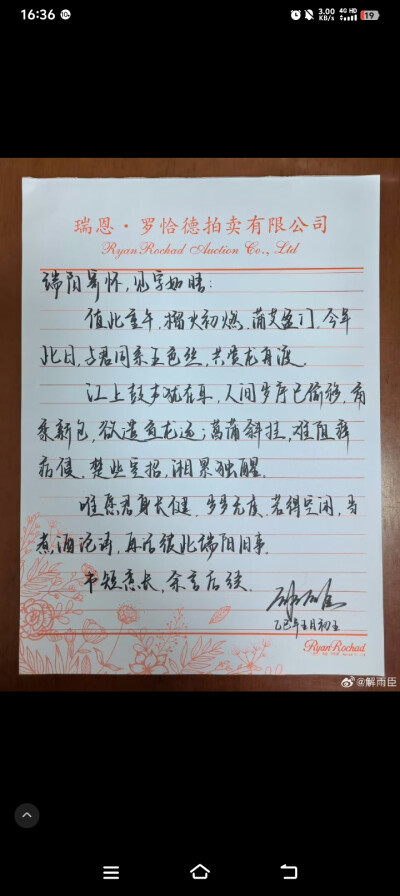 16:36
3.00
KB/s
4G HD
19
瑞恩·罗恰德拍卖有限公司
Ryan Rochad Auction Co., Ltd
端阳寄怀，见字如晤：
值此重午，榴火初燃，蒲艾盈门，今年
此日，与君同系五色丝，共赏龙舟渡。
江上鼓声犹在耳，人间岁序已偷移，角
黍新包，欲遗
菖蒲斜挂，难阻
楚些空招，湘累独醒。
唯愿君身长健，岁岁无虞，若得空闲，当
煮酒沱涛，再话彼此端阳旧事。
书短意长，余言后续。
乙巳年五月初五
Ryan Rochad
@解雨臣